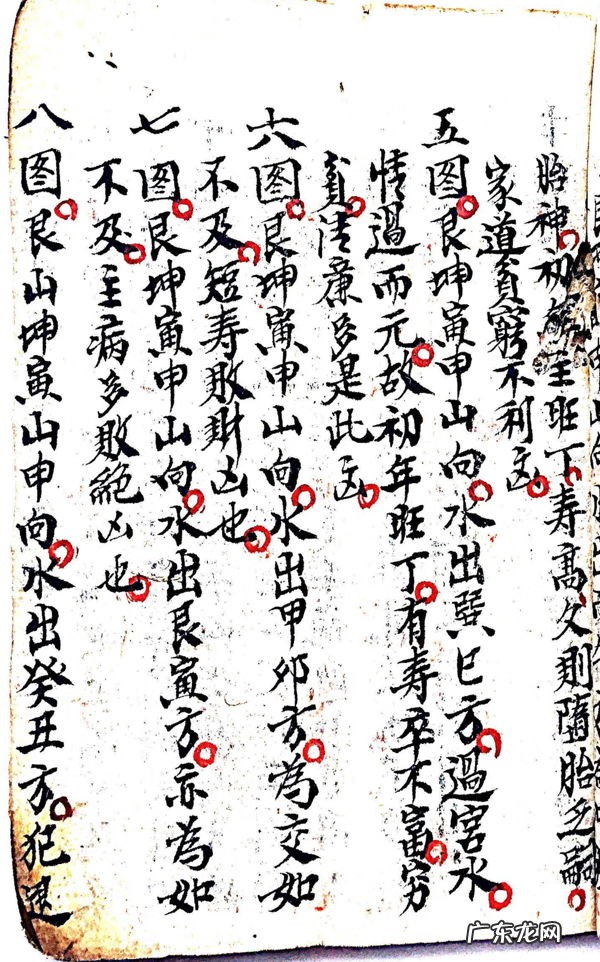 胎神初年主旺丁寿高久则堕胎乏嗣
家道貧窮不利
五图艮坤寅申山向水出巽巳方過宫水
情過而元故初年旺丁有寿卒不富穷
清廉多是此
六图艮坤寅申山向水出甲卯方為交如
不及短寿敗財凶也
七图艮坤寅申山向水出艮寅方亦為如
不及主病多敗絕凶也
八图艮山坤寅山申向水出癸丑方犯退
广东龙网